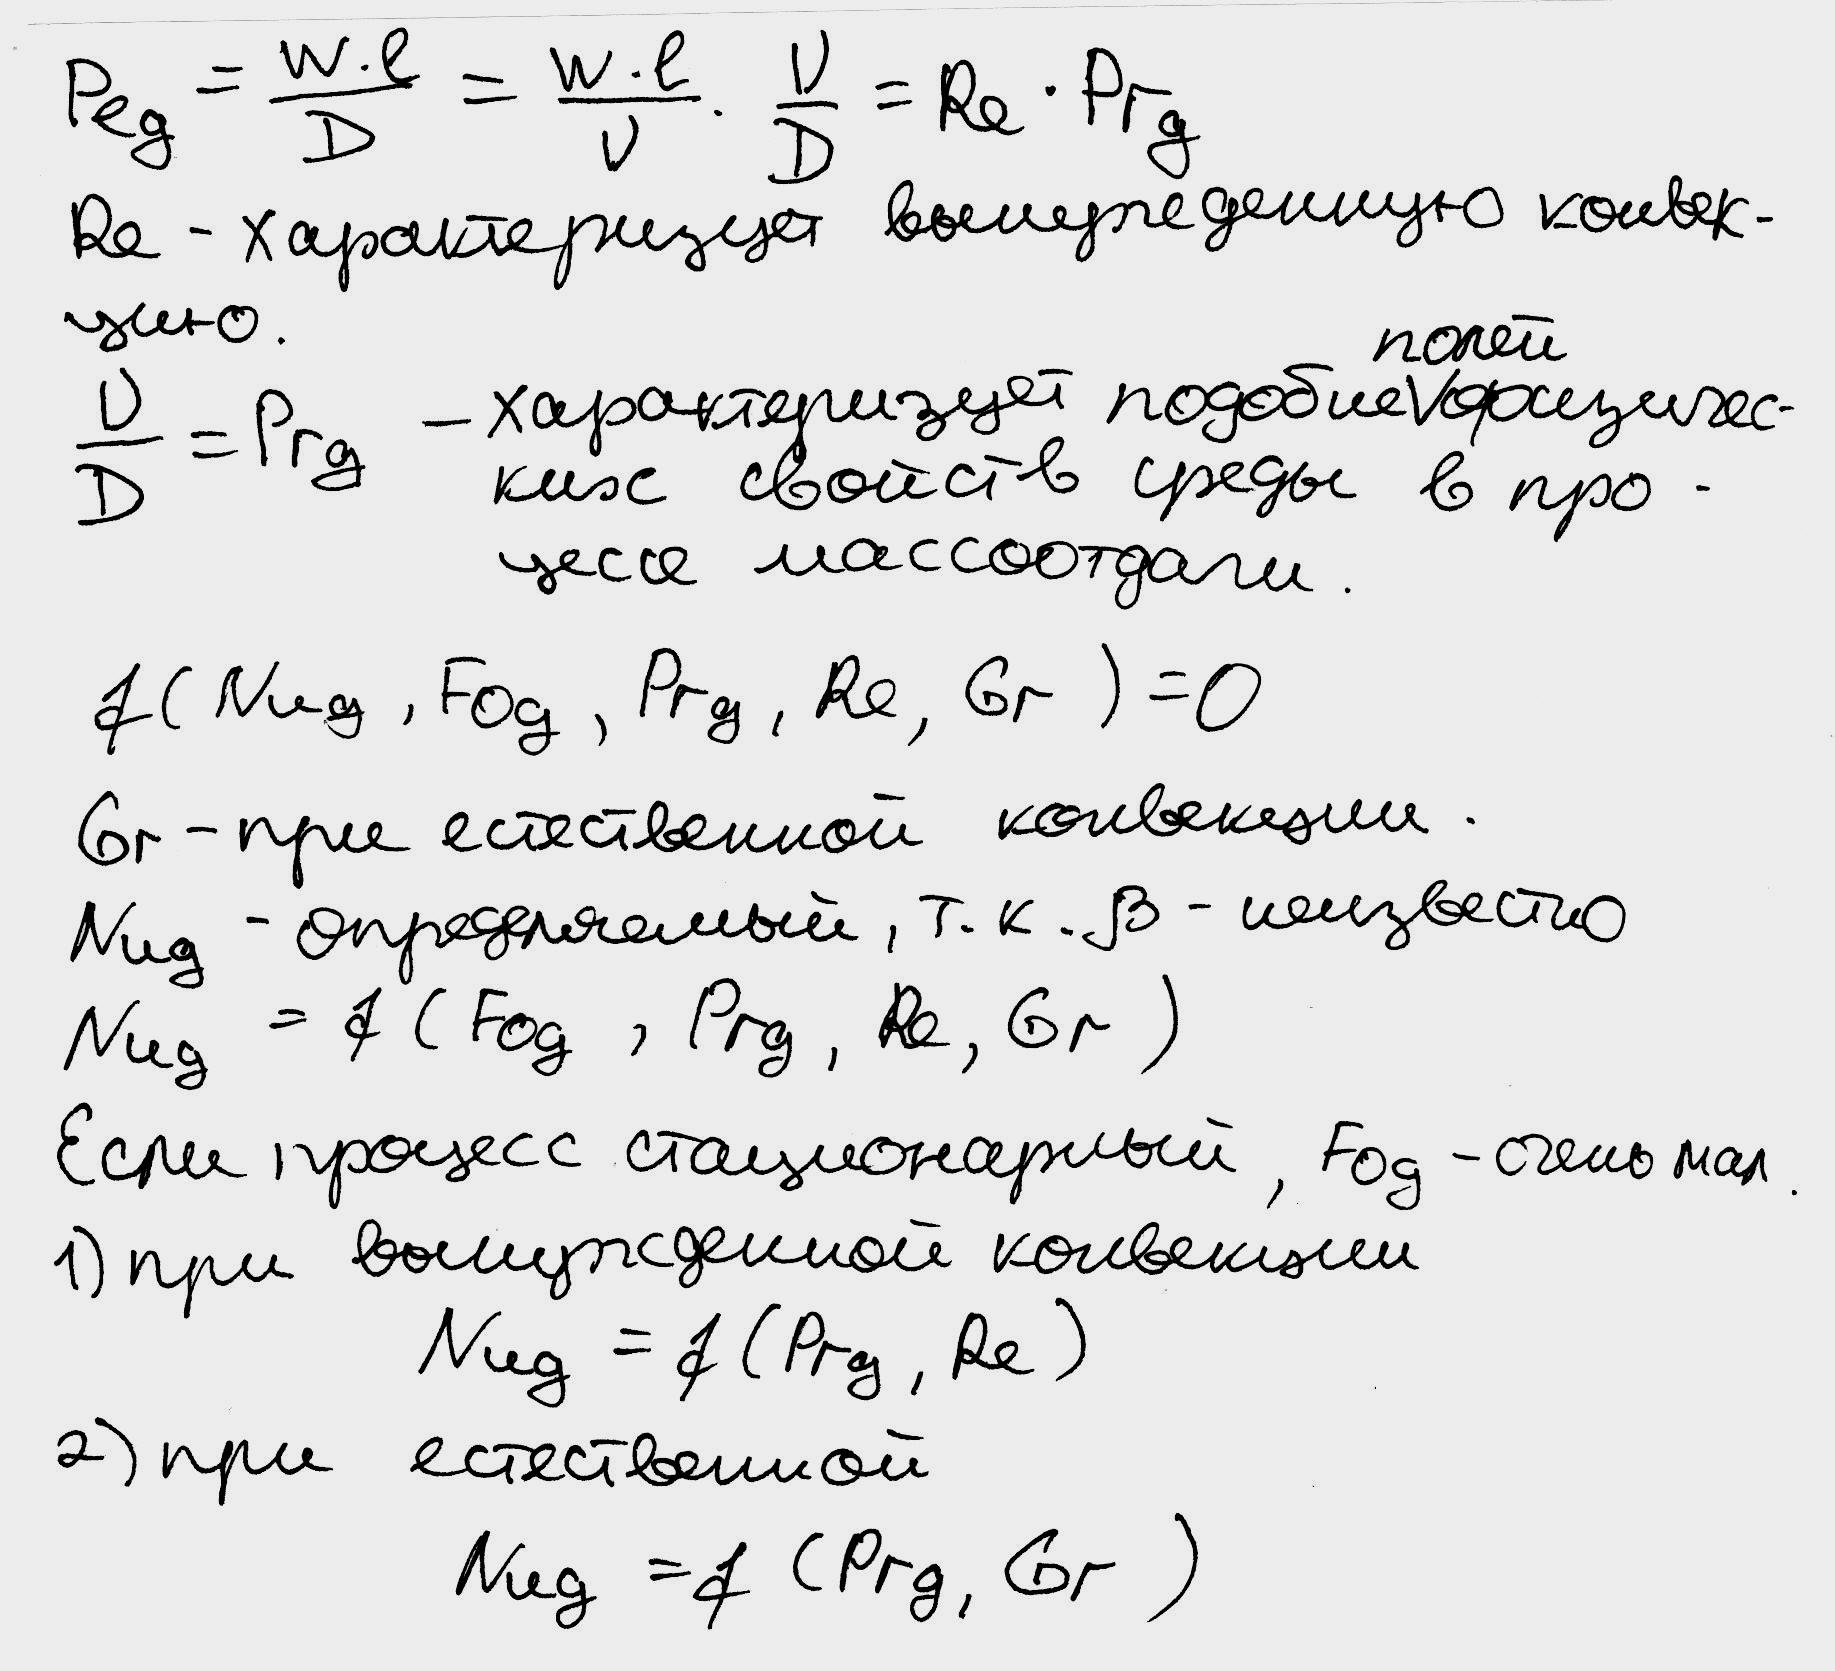 Peg = w·l/D = w·l/ν · ν/D = Re · Prg
Re - характеризует вынужденную конвек-
цию.
полей
ν/D = Prg - характеризует подобие V физичес-
ких свойств среды в про-
цессе массоотдачи.
f(Nug, Fog, Prg, Re, Gr) = 0
Gr - при естественной конвекции.
Nug - определяемый, т.к. β - неизвестно
Nug = f(Fog, Prg, Re, Gr)
Если процесс стационарный, Fog - очень мал.
1) при вынужденной конвекции
Nug = f(Prg, Re)
2) при естественной
Nug = f(Prg, Gr)